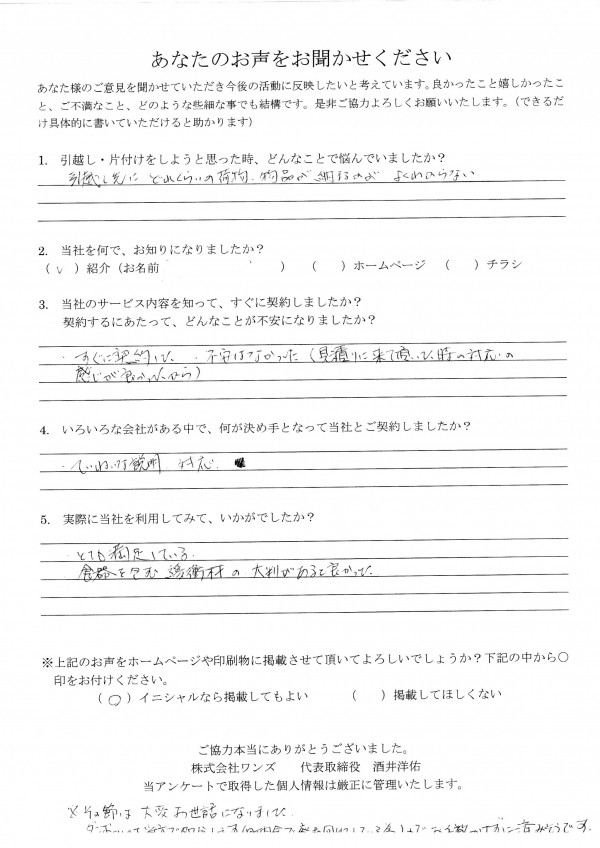 あなたのお声をお聞かせください
あなた様のご意見を聞かせていただき今後の活動に反映したいと考えています。良かったこと嬉しかったこ
と、ご不満なこと、どのような些細な事でも結構です。是非ご協力よろしくお願いいたします。（できるだ
け具体的に書いていただけると助かります）
1. 引越し・片付けをしようと思った時、どんなことで悩んでいましたか？
引越し先に どれくらいの荷物、物品が 納まるのか よくわからない
2. 当社を何で、お知りになりましたか？
（ ✓ ）紹介（お名前 ） （ ）ホームページ （ ）チラシ
3. 当社のサービス内容を知って、すぐに契約しましたか？
契約するにあたって、どんなことが不安になりましたか？
・すぐに契約した ・不安はなかった（見積りに来て頂いた時の対応の
感じが良かったから）
4. いろいろな会社がある中で、何が決め手となって当社とご契約しましたか？
・ていねいな説明 対応
5. 実際に当社を利用してみて、いかがでしたか？
・とても満足している
・食器を包む 緩衝材の 大判があると良かった
※上記のお声をホームページや印刷物に掲載させて頂いてよろしいでしょうか？下記の中から○
印をお付けください。
（ ○ ）イニシャルなら掲載してもよい （ ）掲載してほしくない
ご協力本当にありがとうございました。
株式会社ワンズ 代表取締役 酒井洋佑
当アンケートで取得した個人情報は厳正に管理いたします。
※その節は 大変お世話になりました。